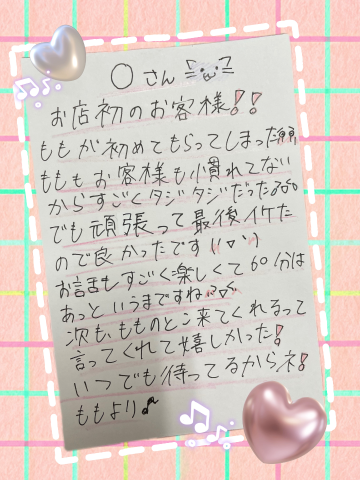 〇さん
お店初のお客様!!
ももが初めてもらってしまった
もももお客様も慣れてない
からすごくタジタジだった
でも頑張って最後イケた
ので良かったです(^▽^)
お話もすごく楽しくて60分は
あっというまですね
次も、もものとこ来てくれるって
言ってくれて嬉しかった!
いつでも待ってるからネ!
ももより♪